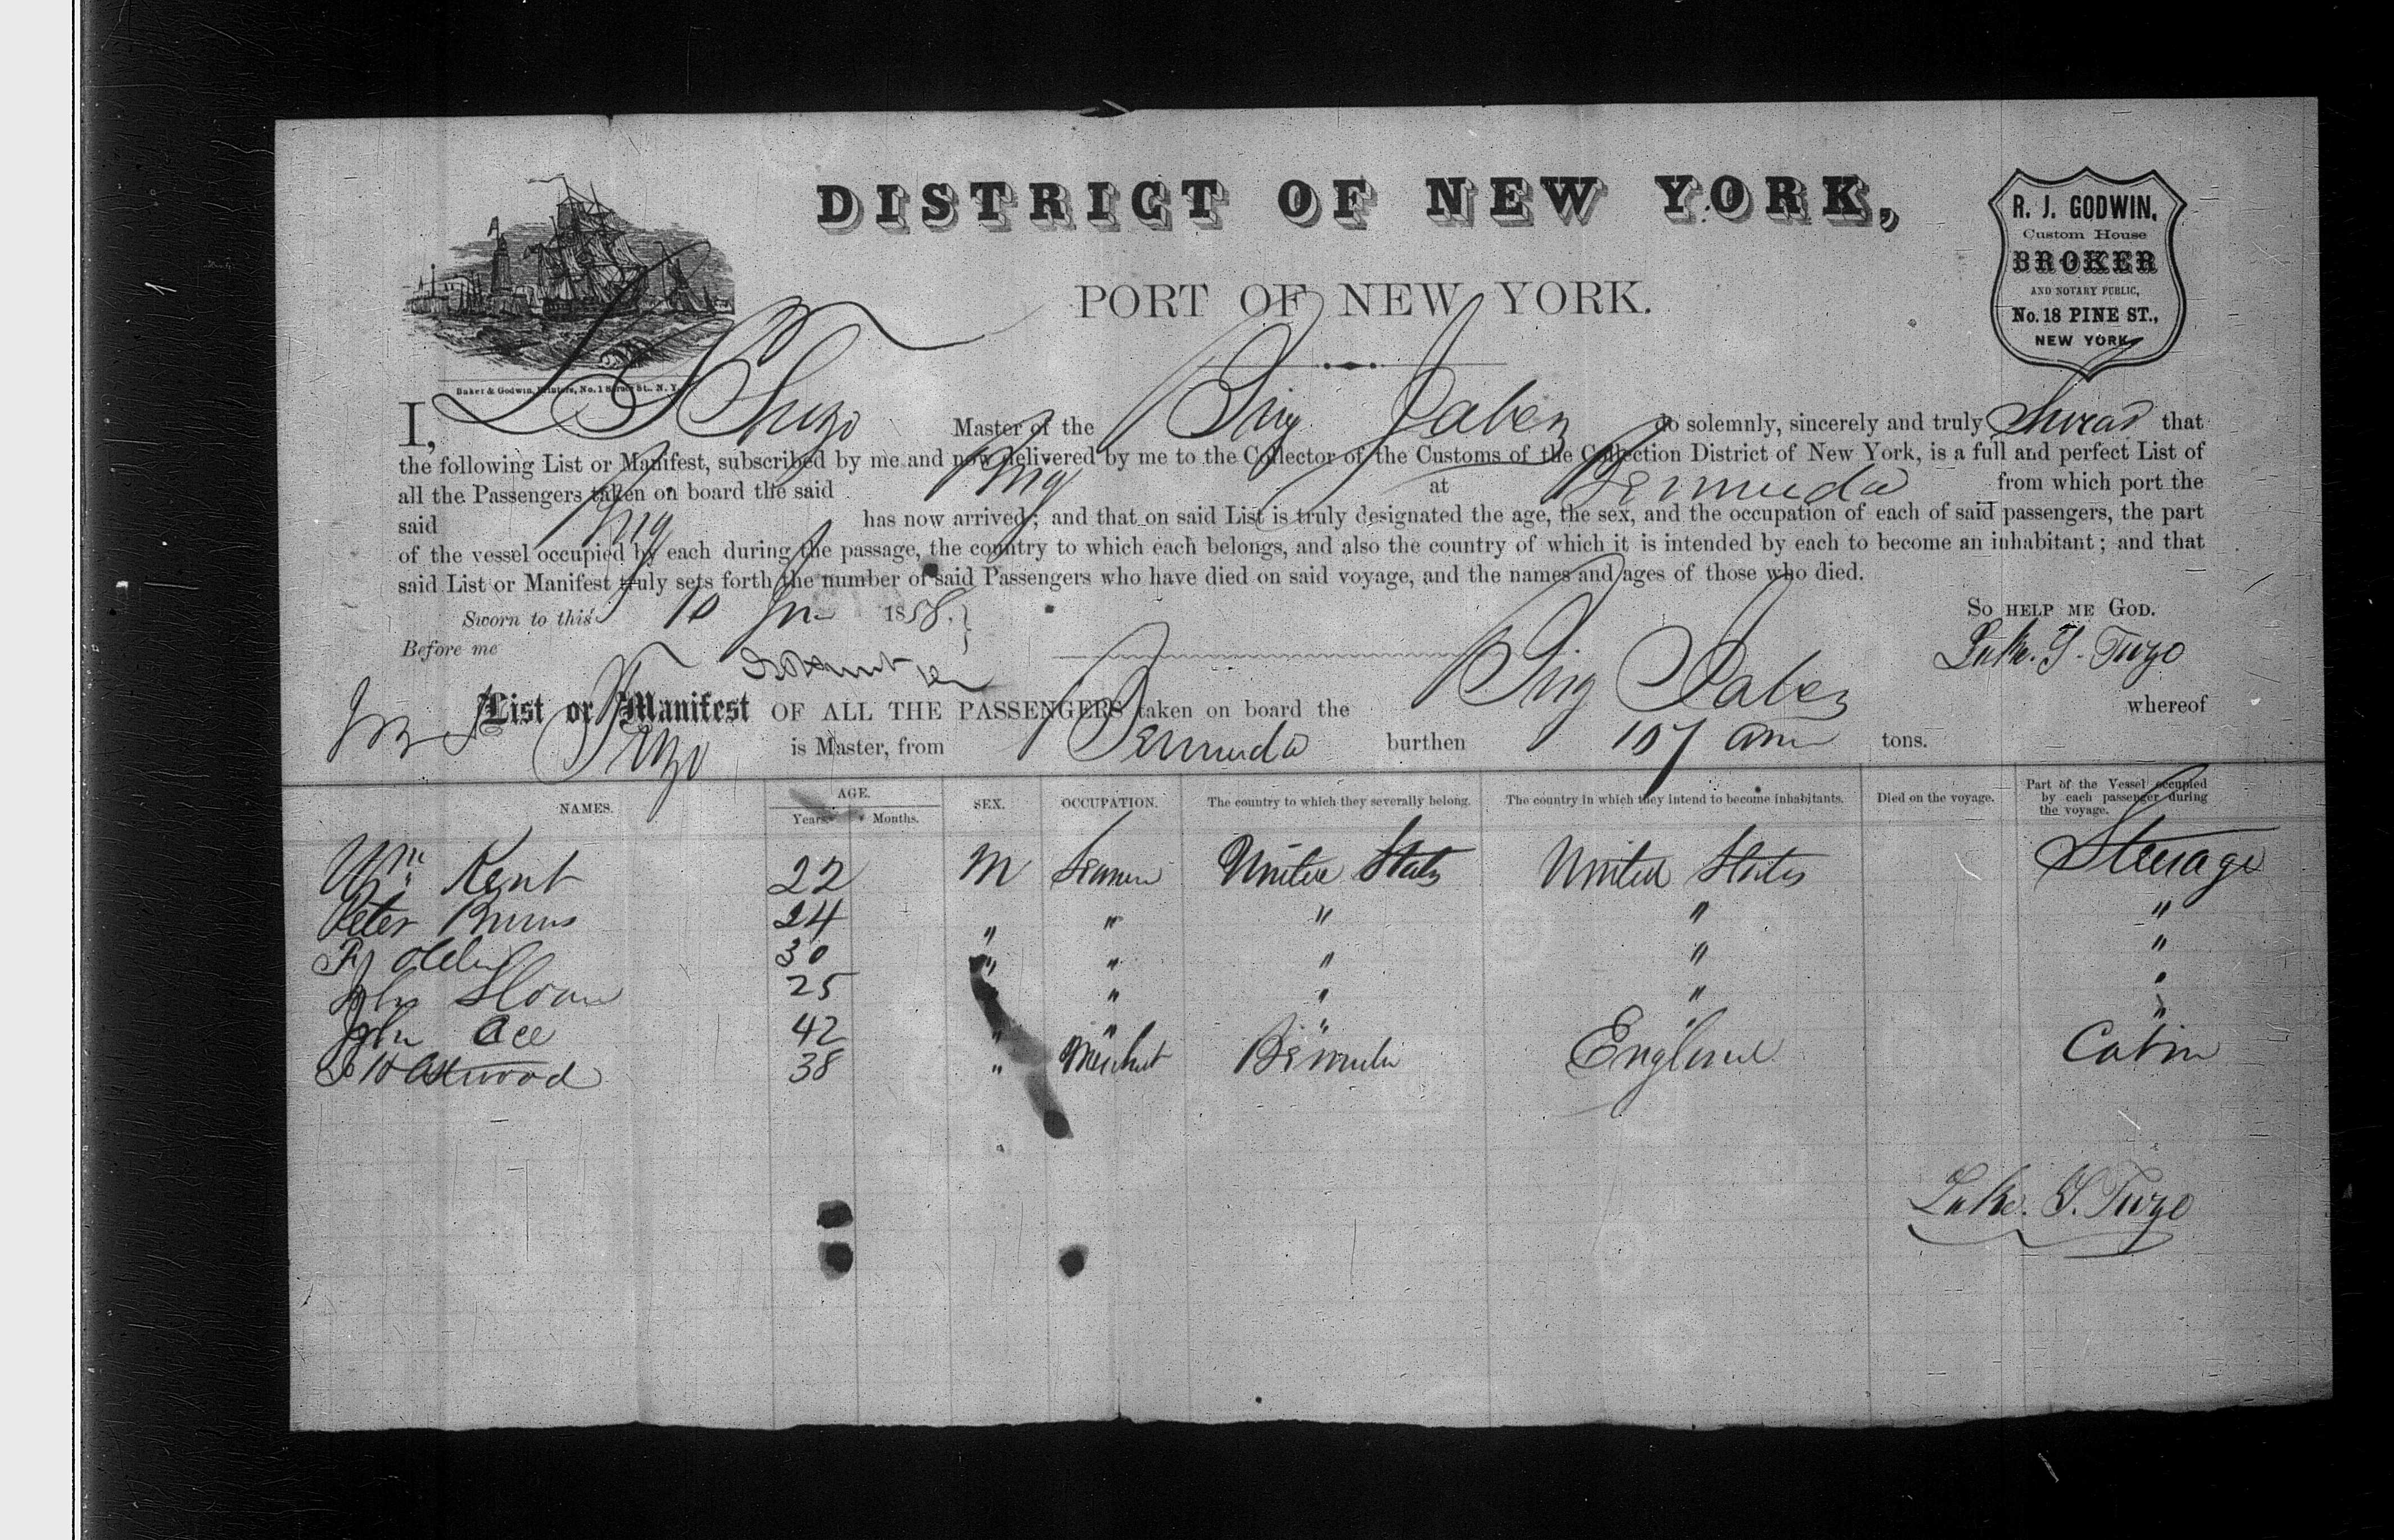 DISTRICT OF NEW YORK,
PORT OF NEW YORK.
R. J. GODWIN,
Custom House
BROKER
AND NOTARY PUBLIC,
No. 18 PINE ST.,
NEW YORK
Baker & Godwin, Printers, No. 1 Spruce St., N. Y.
I, Tuzo Master of the Brig Jabez do solemnly, sincerely and truly Swear that
the following List or Manifest, subscribed by me and now delivered by me to the Collector of the Customs of the Collection District of New York, is a full and perfect List of
all the Passengers taken on board the said Brig at Bermuda from which port the
said Brig has now arrived; and that on said List is truly designated the age, the sex, and the occupation of each of said passengers, the part
of the vessel occupied by each during the passage, the country to which each belongs, and also the country of which it is intended by each to become an inhabitant; and that
said List or Manifest truly sets forth the number of said Passengers who have died on said voyage, and the names and ages of those who died.
Sworn to this 10 1858. SO HELP ME GOD.
Before me Tuzo
List or Manifest OF ALL THE PASSENGERS taken on board the Brig Jabez whereof
Tuzo is Master, from Bermuda burthen 107 tons.
NAMES. AGE. Years. Months. SEX. OCCUPATION. The country to which they severally belong. The country in which they intend to become inhabitants. Died on the voyage. Part of the Vessel occupied by each passenger during the voyage.
Wm Kent 22 M Seamen United States United States Steerage
Peter Burns 24 " " " " "
30 " " " " "
John Sloan 25 " " " "
John Ace 42 " " " " "
38 " Merchant Bermuda England Cabin
Tuzo